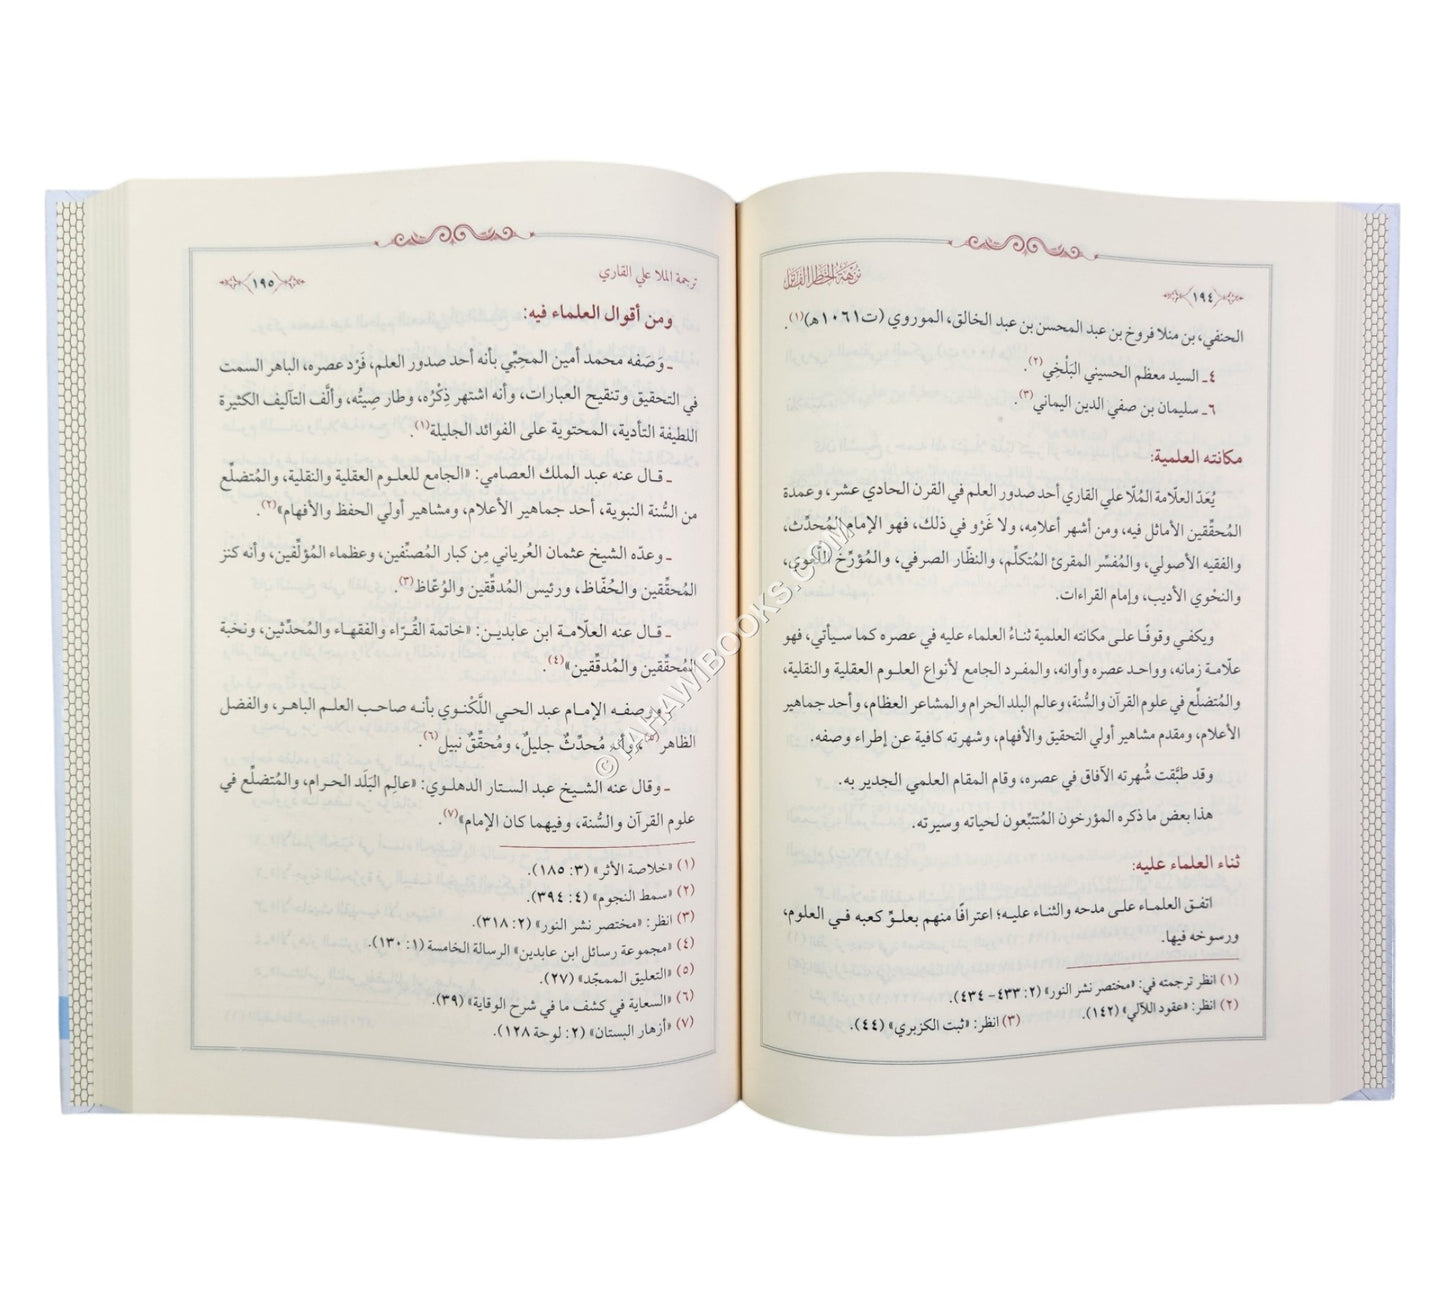 نزهة الخاطر الفاتر
١٩٤
الحنفي، بن منلا فروخ بن عبد المحسن بن عبد الخالق، الموروي (ت١٠٦١هـ)(١).
٤ـ السيد معظم الحسيني البَلْخِي(٢).
٦ـ سليمان بن صفي الدين اليماني(٣).
مكانته العلمية:
يُعَدّ العلّامة المُلّا علي القاري أحد صدور العلم في القرن الحادي عشر، وعمدة
المُحقِّقين الأماثل فيه، ومن أشهر أعلامِه، ولا غَرْو في ذلك، فهو الإمام المُحدِّث،
والفقيه الأصولي، والمُفسِّر المقرئ المُتكلِّم، والنظّار الصرفي، والمُؤرِّخ اللُّغوي،
والنحْوي الأديب، وإمام القراءات.
ويكفي وقوفًا على مكانته العلمية ثناءُ العلماء عليه في عصره كما سيأتي، فهو
علّامة زمانه، وواحد عصره وأوانه، والمفرد الجامع لأنواع العلوم العقلية والنقلية،
والمُتضلِّع في علوم القرآن والسُّنة، وعالم البلد الحرام والمشاعر العظام، وأحد جماهير
الأعلام، ومقدم مشاهير أولي التحقيق والأفهام، وشهرته كافية عن إطراء وصفه.
وقد طبَّقت شُهرته الآفاق في عصره، وقام المقام العلمي الجدير به.
هذا بعض ما ذكره المؤرخون المُتتبِّعون لحياته وسيرته.
ثناء العلماء عليه:
اتفق العلماء على مدحه والثناء عليه؛ اعترافًا منهم بعلوِّ كعبه في العلوم،
ورسوخه فيها.
(١) انظر ترجمته في: «مختصر نشر النور» (٢: ٤٣٣- ٤٣٤).
(٢) انظر: «عقود اللآلي» (١٤٢).
(٣) انظر: «ثبت الكزبري» (٤٤).
ترجمة الملا علي القاري
١٩٥
ومن أقوال العلماء فيه:
ـ وَصَفه محمد أمين المحِبِّي بأنه أحد صدور العلم، فَرْد عصره، الباهر السمت
في التحقيق وتنقيح العبارات، وأنه اشتهر ذِكْرُه، وطار صِيتُه، وألَّف التآليف الكثيرة
اللطيفة التأدية، المحتوية على الفوائد الجليلة(١).
ـ قال عنه عبد الملك العصامي: «الجامع للعلوم العقلية والنقلية، والمُتضلِّع
من السُّنة النبوية، أحد جماهير الأعلام، ومشاهير أولي الحفظ والأفهام»(٢).
ـ وعدّه الشيخ عثمان العُرياني مِن كبار المُصنِّفين، وعظماء المُؤلِّفين، وأنه كنز
المُحقِّقين والحُفّاظ، ورئيس المُدقِّقين والوُعّاظ(٣).
ـ قال عنه العلّامة ابن عابدين: «خاتمة القُرّاء والفقهاء والمُحدِّثين، ونخبة
المُحقِّقين والمُدقِّقين»(٤).
ـ ووصفه الإمام عبد الحي اللَّكْنوي بأنه صاحب العلم الباهر، والفضل
الظاهر(٥)، وأنه مُحدِّثٌ جليلٌ، ومُحقِّقٌ نبيل(٦).
ـ وقال عنه الشيخ عبد الستار الدهلوي: «عالِم البَلَد الحرام، والمُتضلِّع في
علوم القرآن والسُّنة، وفيهما كان الإمام»(٧).
(١) «خلاصة الأثر» (٣: ١٨٥).
(٢) «سمط النجوم» (٤: ٣٩٤).
(٣) انظر: «مختصر نشر النور» (٢: ٣١٨).
(٤) «مجموعة رسائل ابن عابدين» الرسالة الخامسة (١: ١٣٠).
(٥) «التعليق الممجّد» (٢٧).
(٦) «السعاية في كشف ما في شرح الوقاية» (٣٩).
(٧) «أزهار البستان» (٢: لوحة ١٢٨).
© TAHAWIBOOKS.COM